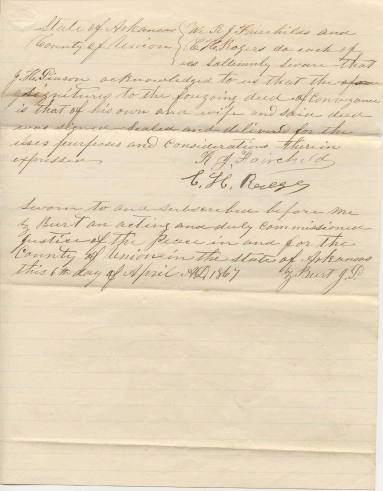 State of Arkansas { We R J Fairchilds and
County of Union { C. H. Rogers do each of
us sollemnly sware that
J. H. Pinson acknowledged to us that the
signiture to the foregoing deed of Conveyance
is that of his own and wife and said deed
was signed sealed and deliverd for the
uses purposes and considerations therein
expressed R J Fairchild
C. H.
Sworn to and subscribed before me
Z Burt an acting and duly Commissioned
Justice of the Peace in and for the
County of Union in the state of Arkansas
this 6th day of April AD, 1867 Z Burt J. P.